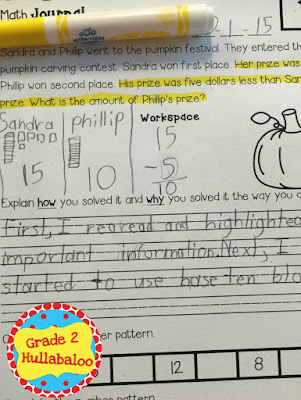 Math Journal
2-1-15
Sandra and Philip went to the pumpkin festival. They entered th
pumpkin carving contest. Sandra won first place. Her prize was
Philip won second place. His prize was five dollars less than San
prize. What is the amount of Philip's prize?
Sandra Phillip Workspace
15
-5
10
15 10
Explain how you solved it and why you solved it the way you d
First, I reread and highlighted
important information. Next, I
started to use base ten blo
er pattern.
12 8
Grade 2
Hullabaloo
number pattern